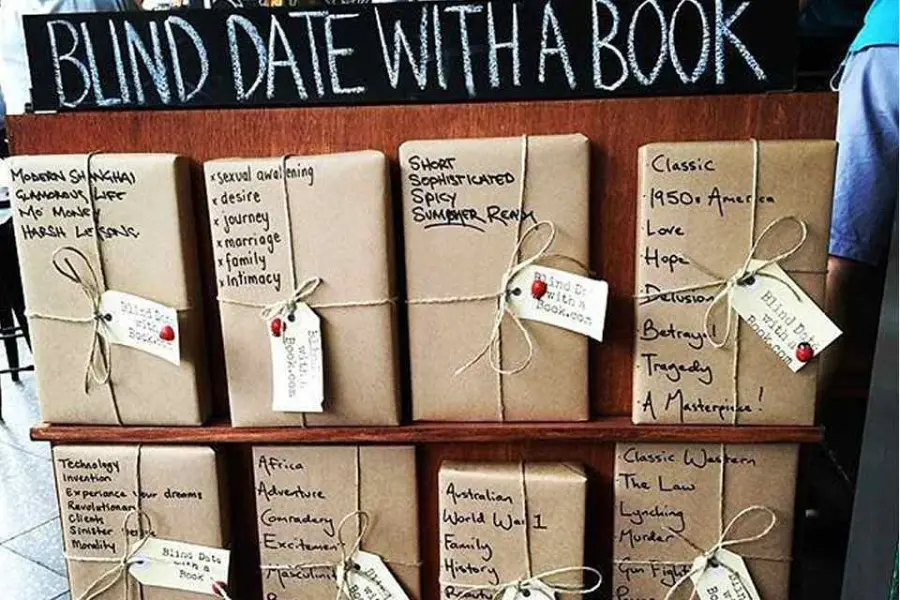 BLIND DATE WITH A BOOK
MODERN SHANGHAI
GLAMOROUS LIFE
NO MONEY
HARSH LESSONS
Blind Date
with a
Book.com
x sexual awakening
x desire
x journey
x marriage
x family
x Intimacy
Blind Date
with a
Book.com
SHORT
SOPHISTICATED
SPICY
SUMMER READ
Blind Date
with a
Book.com
· Classic
· 1950s America
· Love
· Hope
· Delusion
· Betrayal
· Tragedy
· A Masterpiece!
Blind Date
with a
Book.com
Technology
Invention
Experience your dreams
Revolutionary
Clients
Sinister
Morality
Blind Date
with a
Book
Africa
Adventure
Comradery
Excitement
Masculinity
Blind
Australian
World War 1
Family
History
Beauty
Classic Western
The Law
Lynching
Murder
Gun Fights